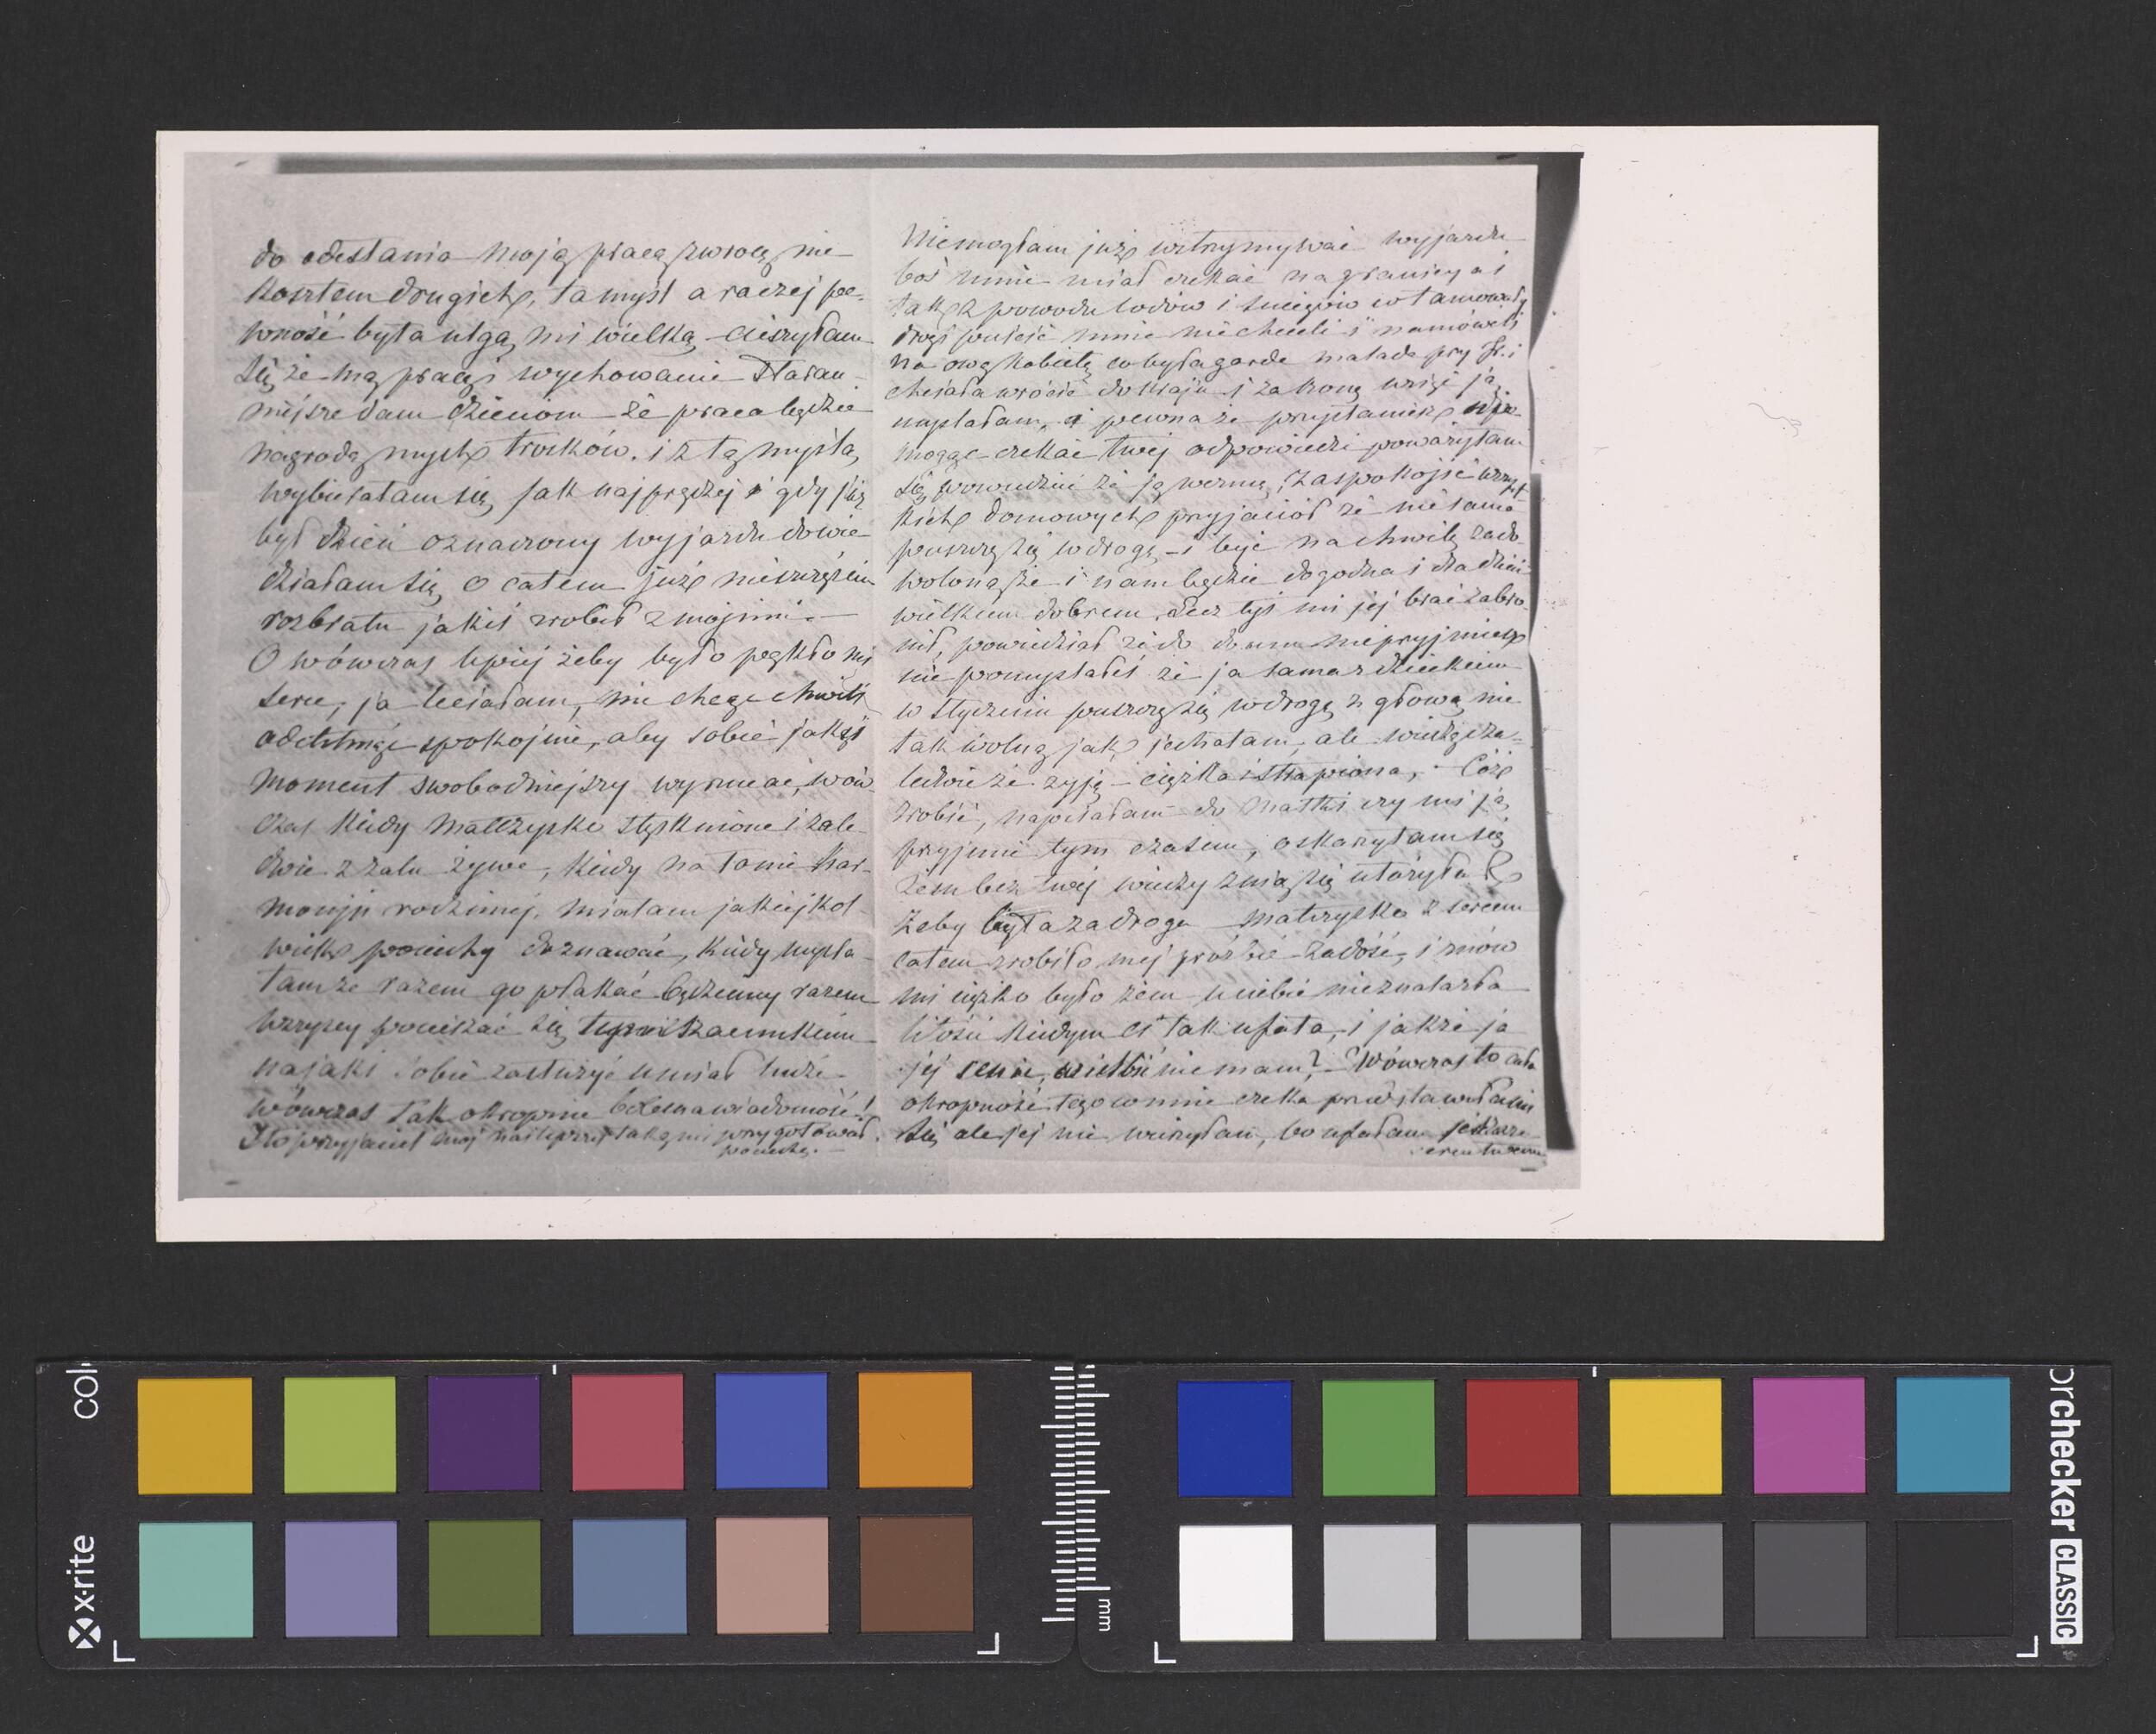 do odesłania moją pracą zwrócę nie
kosztem drugich, ta myśl a raczej pe-
wność była ulgą mi wielką cieszyłam
się że mą pracą i wychowanie staran-
niejsze dam dzieciom że praca będzie
nagrodą mych trosków. i z tą myślą
wybierałam się jak najprędzej i gdy już
był dzień oznaczony wyjazdu dowie-
działam się o całem już nieszczęściu
rozbratu jakiś zrobił z mojimi. —
O wówczas lepiej żeby było pękło mi
serce, ja leciałam, nie chcąc chwili
odetchnąć spokojnie, aby sobie jakąś
moment swobodniejszy wyrwać, wów-
czas kiedy Matczysko stęsknione i zale-
dwie z żalu żywe, kiedy na łonie har-
monji rodzinnej miałam jakiejkol-
wiek pociechy doznawać, kiedy myśla-
łam że razem go płakać będziemy razem
wszyscy pocieszać się szacunkiem
na jaki sobie zasłużyć umiał ludzi
wówczas tak okropnie bolesna wiadomość!
I to przyjaciel mój najlepszy taką mi przygotował
pociechę. —
Niemogłam już wstrzymywać wyjazdu
boś mnie miał czekać na granicy a i
tak z powodu lodów i śniegów co tamowały
drogi puścić mnie nie chcieli i namówili
na ową kobietę co była garde malade przy
chciała wrócić do kraju i za boną wziąść ją
napisałam, i pewna że przystaniesz nie
mogąc czekać twej odpowiedzi poważyłam
się powiedzieć że ją wezmę, zaspokoić wszyst-
kich domowych przyjaciół że nie sama
puszczę się w drogę — i być na chwilę zado-
woloną że i nam będzie dogodna i dla dzieci
wielkiem dobrem. Lecz tyś mi jej brać zabro-
nił, powiedział że do domu nie przyjmiesz
nie pomyślałeś że ja sama z dzieckiem
w styczniu puszczę się w drogę z głową nie
tak wolną jak jechałam, ale wiedząc że
ledwie że żyję — ciężka i strapiona, — Cóż
zrobić, napisałam do Matki czy mi ją
przyjmie tym czasem, oskarżyłam się
żem bez twej wiedzy z nią się ułożyła
żeby była za drogę Matczysko z sercem
całem zrobiło mej prośbie zadość, i znów
mi ciężko było żem u ciebie nieznalazła
litości kiedym ci tak ufała, i jakże ja
jej cenić, wielbić nie mam? — Wówczas to cała
okropność tego co mnie czeka przedstawiła mi
się ale jej nie wierzyłam, bo ufałam jeszcze
sercu twemu
col
x·rite
mm
orchecker CLASSIC